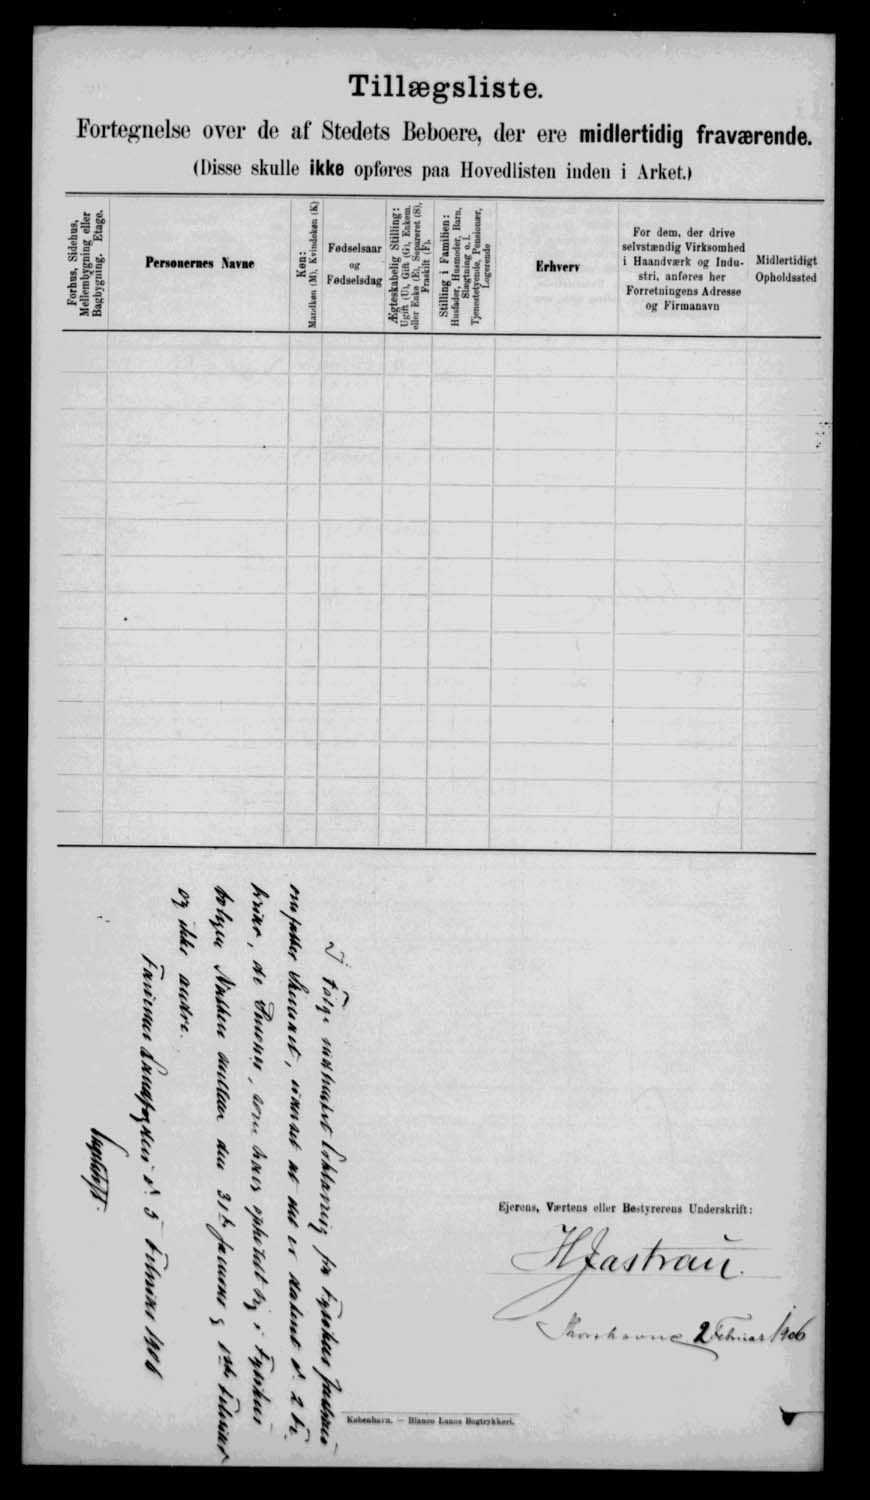 Tillægsliste.
Fortegnelse over de af Stedets Beboere, der ere midlertidig fraværende.
(Disse skulle ikke opføres paa Hovedlisten inden i Arket.)
Forhus, Sidehus,
Mellembygning eller
Bagbygning. Etage.
Personernes Navne
Køn:
Mandkøn (M), Kvindekøn (K)
Fødselsaar
og
Fødselsdag
Ægteskabelig Stilling:
Ugift (U), Gift (G), Enkem.
eller Enke (E), Separeret (S),
Fraskilt (F).
Stilling i Familien:
Husfader, Husmoder, Barn,
Slægtning o. l.
Tjenestetyende, Pensionær,
Logerende
Erhverv
For dem, der drive
selvstændig Virksomhed
i Haandværk og Indu-
stri, anføres her
Forretningens Adresse
og Firmanavn
Midlertidigt
Opholdssted
I Følge modtaget Erklæring fra Fysikus Jastrau
omfatter Skemaet, uanset at det er dateret d. 2 ds,
de Personer, som have opholdt sig i Fysikus
bolgen Natten mellem den 31te Januar og 1ste Februar
og ikke andre.
Færøernes Landfogderi d. 5 Februar 1906
Ejerens, Værtens eller Bestyrerens Underskrift:
HJastrau.
Thorshavn 2 Februar 1906
København. — Bianco Lunos Bogtrykkeri.